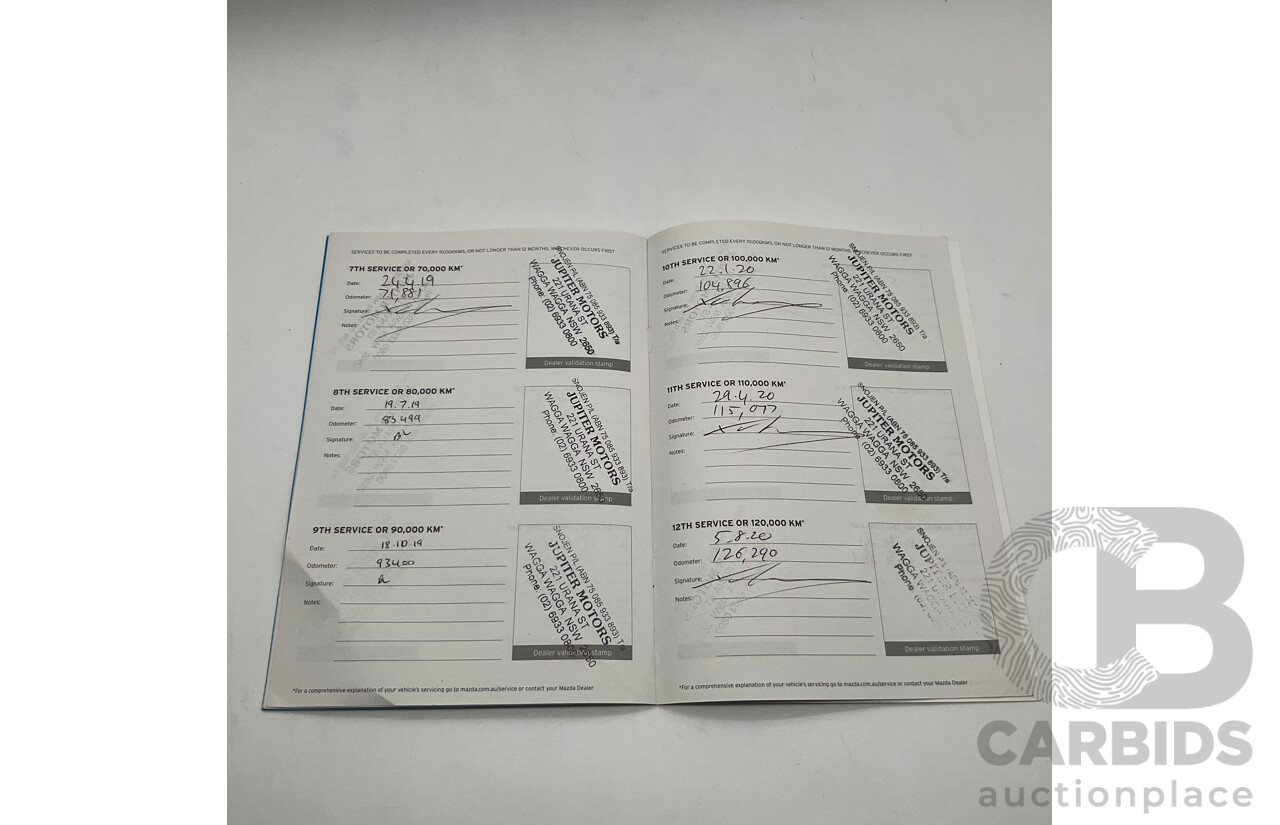 SERVICES TO BE COMPLETED EVERY 10,000KMS, OR NOT LONGER THAN 12 MONTHS, WHICHEVER OCCURS FIRST
7TH SERVICE OR 70,000 KM*
Date: 24.4.19
Odometer: 71,881
Signature:
Notes:
SNOJEN P/L (ABN 75 085 933 893) T/a
JUPITER MOTORS
221 URANA ST
WAGGA WAGGA NSW 2650
Phone: (02) 6933 0800
Dealer validation stamp
8TH SERVICE OR 80,000 KM*
Date: 19.7.19
Odometer: 83499
Signature:
Notes:
SNOJEN P/L (ABN 75 085 933 893) T/a
JUPITER MOTORS
221 URANA ST
WAGGA WAGGA NSW 2650
Phone: (02) 6933 0800
Dealer validation stamp
9TH SERVICE OR 90,000 KM*
Date: 18.10.19
Odometer: 93400
Signature:
Notes:
SNOJEN P/L (ABN 75 085 933 893) T/a
JUPITER MOTORS
221 URANA ST
WAGGA WAGGA NSW 2650
Phone: (02) 6933 0800
Dealer validation stamp
*For a comprehensive explanation of your vehicle's servicing go to mazda.com.au/service or contact your Mazda Dealer
SERVICES TO BE COMPLETED EVERY 10,000KMS, OR NOT LONGER THAN 12 MONTHS, WHICHEVER OCCURS FIRST
10TH SERVICE OR 100,000 KM*
Date: 22.1.20
Odometer: 104,896
Signature:
Notes:
SNOJEN P/L (ABN 75 085 933 893) T/a
JUPITER MOTORS
221 URANA ST
WAGGA WAGGA NSW 2650
Phone: (02) 6933 0800
Dealer validation stamp
11TH SERVICE OR 110,000 KM*
Date: 29.4.20
Odometer: 115,077
Signature:
Notes:
SNOJEN P/L (ABN 75 085 933 893) T/a
JUPITER MOTORS
221 URANA ST
WAGGA WAGGA NSW 2650
Phone: (02) 6933 0800
Dealer validation stamp
12TH SERVICE OR 120,000 KM*
Date: 5.8.20
Odometer: 126,290
Signature:
Notes:
SNOJEN
WAGGA WAGGA
Phone:
Dealer validation stamp
*For a comprehensive explanation of your vehicle's servicing go to mazda.com.au/service or contact your Mazda Dealer
CB
CARBIDS
auctionplace